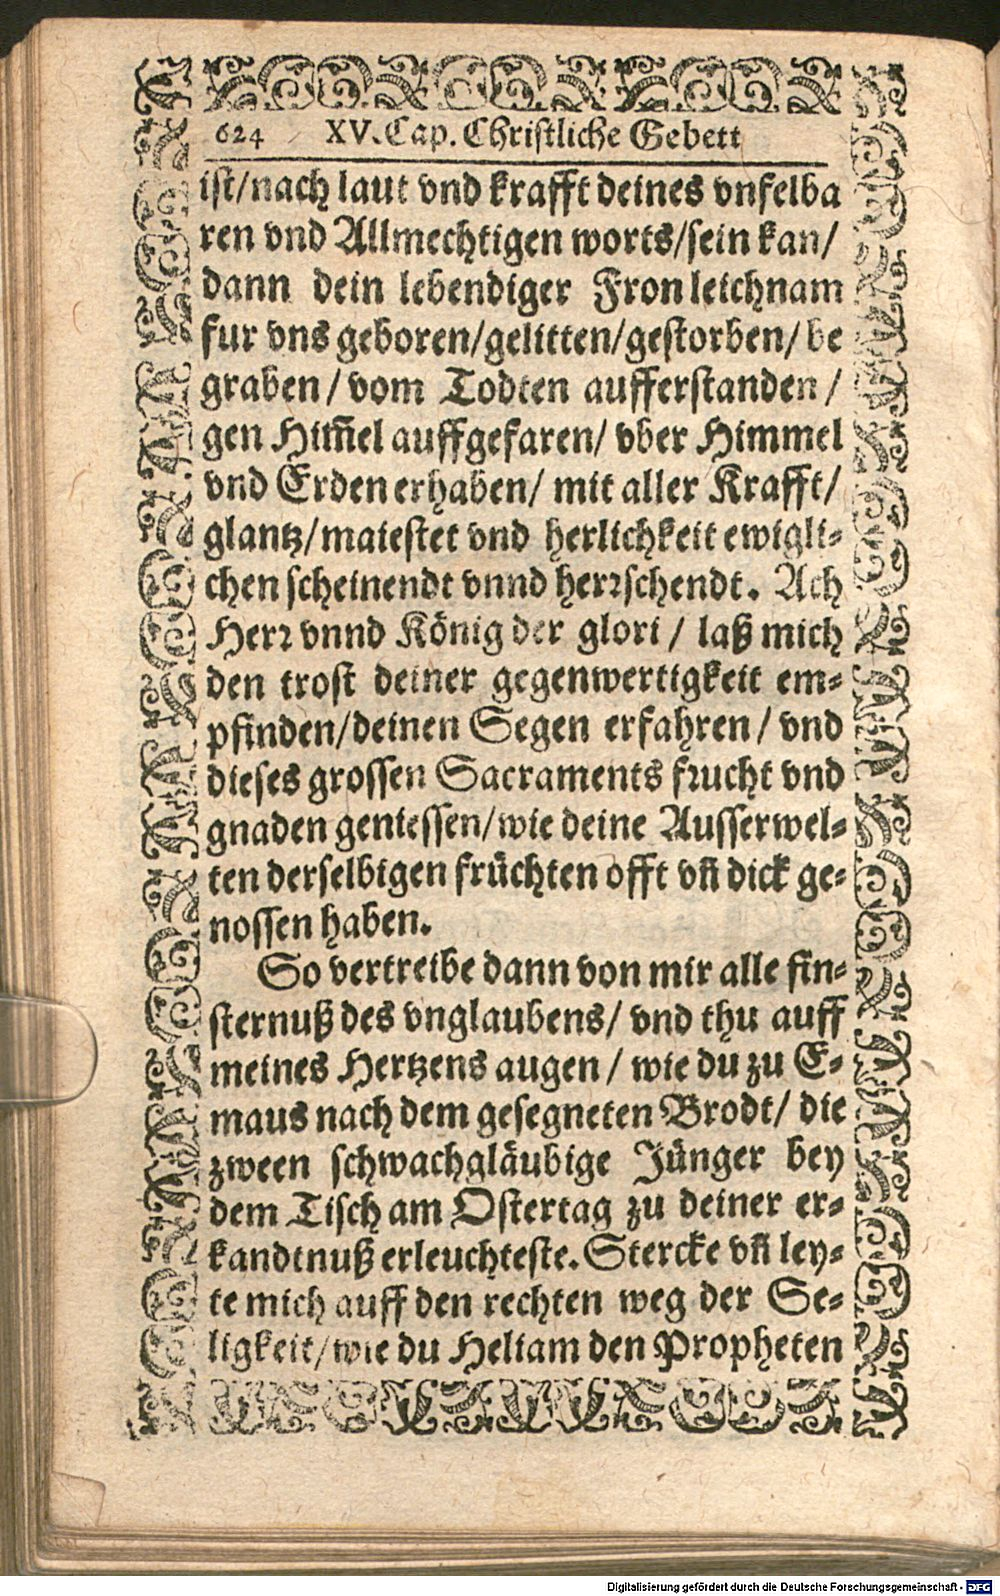 624 XV. Cap. Christliche Gebett
ist/ nach laut vnd krafft deines vnfelba
ren vnd Allmechtigen worts/ sein kan/
dann dein lebendiger Fron leichnam
fur vns geboren/ gelitten/ gestorben/ be
graben / vom Todten aufferstanden /
gen Him̃el auffgefaren/ vber Himmel
vnd Erden erhaben/ mit aller Krafft/
glantz/ maiestet vnd herlichkeit ewigli-
chen scheinendt vnnd herrschendt. Ach
Herr vnnd König der glori / laß mich
den trost deiner gegenwertigkeit em-
pfinden/ deinen Segen erfahren / vnd
dieses grossen Sacraments frucht vnd
gnaden geniessen/ wie deine Ausserwel-
ten derselbigen früchten offt vñ dick ge-
nossen haben.
So vertreibe dann von mir alle fin-
sternuß des vnglaubens/ vnd thu auff
meines Hertzens augen / wie du zu E-
maus nach dem gesegneten Brodt/ die
zween schwachgläubige Jünger bey
dem Tisch am Ostertag zu deiner er-
kandtnuß erleuchteste. Stercke vñ ley-
te mich auff den rechten weg der Se-
ligkeit/ wie du Heliam den Propheten
Digitalisierung gefördert durch die Deutsche Forschungsgemeinschaft - DFG